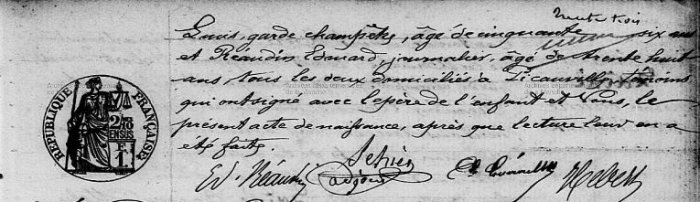 trente trois
Louis, garde champêtre, âgé de cinquante six ans
et Réaudin Edouard, journalier, âgé de trente huit
ans tous les deux domiciliés à Picauville témoins
qui ont signé avec le père de l'enfant et Nous, le
présent acte de naissance, après que lecture leur en a
été faite.
RÉPUBLIQUE FRANÇAISE
2/10 EN SUS
F 1
Ed. Réaudin adjoint Hebert